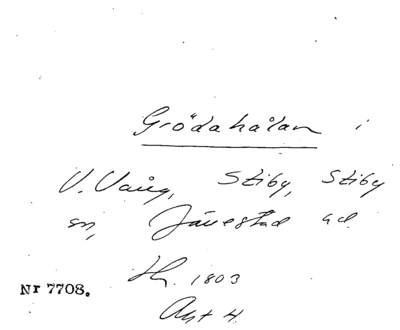 Grödahålan i
V. Vång, Stiby, Stiby
sn, Järrestad ad.
Nr 7708.
1803
Akt 4